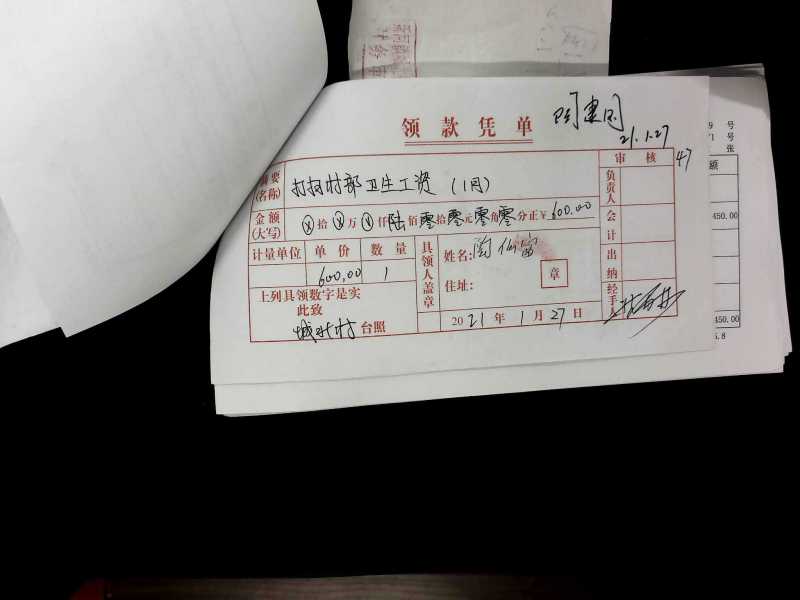 领款凭单
21.1.27
47
摘要(名称) 打扫村部卫生工资 (1月)
审核
金额(大写) ⓧ拾ⓧ万ⓧ仟陆佰零拾零元零角零分正¥600.00
负责人
会计
出纳
经手人
计量单位 单价 数量
600.00 1
具领人盖章
姓名:陶仙富
住址:
章
上列具领数字是实
此致
城村 台照
2021年1月27日
号
号
张
额
450.00
450.00